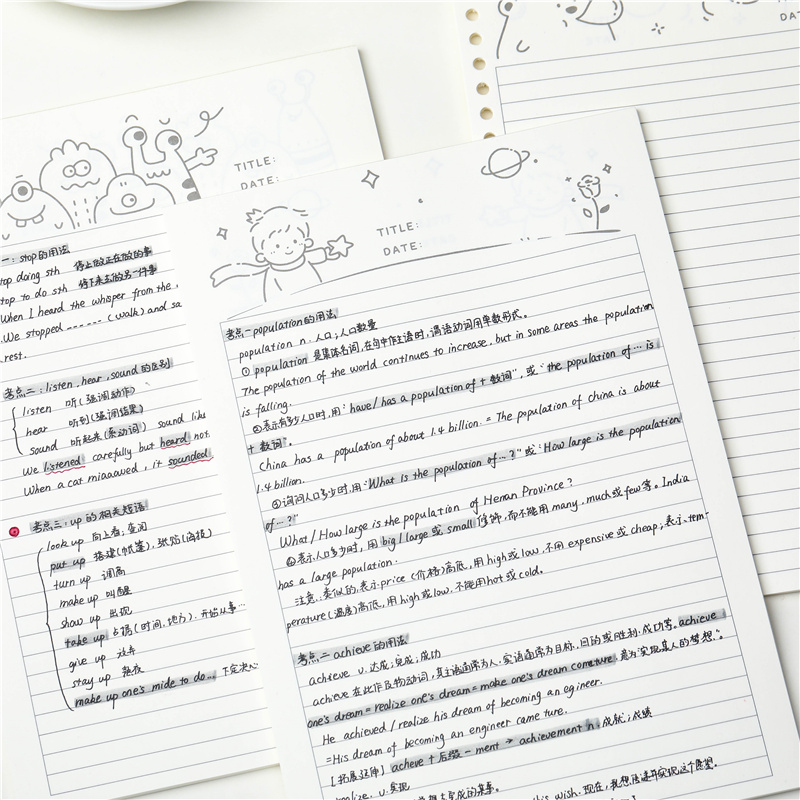 TITLE:
DATE:
一：stop的用法
top doing sth 停止做正在做的事
top to do sth 停下来去做另一件事
When I heard the whisper from the
We stopped ------ (walk) and sa
rest.
考点二：listen, hear, sound的区别
listen 听(强调动作)
hear 听到(强调结果)
sound 听起来(系动词) sound like
We listened carefully but heard not
When a cat miaaowed, it sounded
考点三：up 的相关短语
look up 向上看；查阅
put up 搭建(帐篷)，张贴(海报)
turn up 调高
make up 叫醒
show up 出现
take up 占据(时间、地方)，开始从事…
give up 放弃
stay up 熬夜
make up one's mide to do... 下定决心
TITLE:
DATE:
考点一 population的用法
population n. 人口；人口数量
① population 是集体名词，在句中作主语时，谓语动词用单数形式。
The population of the world continues to increase, but in some areas the population
is falling.
②表示有多少人口时，用"have/has a population of + 数词"，或"the population of … is
+ 数词"。
China has a population of about 1.4 billion. = The population of china is about
1.4 billion.
③询问人口多少时，用"What is the population of…?"或"How large is the population
of…?"
What / How large is the population of Henan Province?
④表示人口多少时，用big/large或small修饰，而不能用many, much或few等。India
has a large population.
注意：类似的，表示price(价格)高低，用high或low，不用expensive或cheap；表示tem-
perature(温度)高低，用high或low，不能用hot或cold。
考点二 achieve的用法
achieve v. 达成；完成；成功
achieve在此作及物动词，其主语通常为人，宾语通常为目标、目的或胜利、成功等。achieve
one's dream = realize one's dream = make one's dream cometure, 意为"实现某人的梦想"。
He achieved / realize his dream of becoming an ogineer.
=His dream of becoming an engineer came ture.
[拓展延伸] acheve + 后缀 - ment → achievement n. 成就；成绩
ealize. v. 实现
this wish. 现在，我想